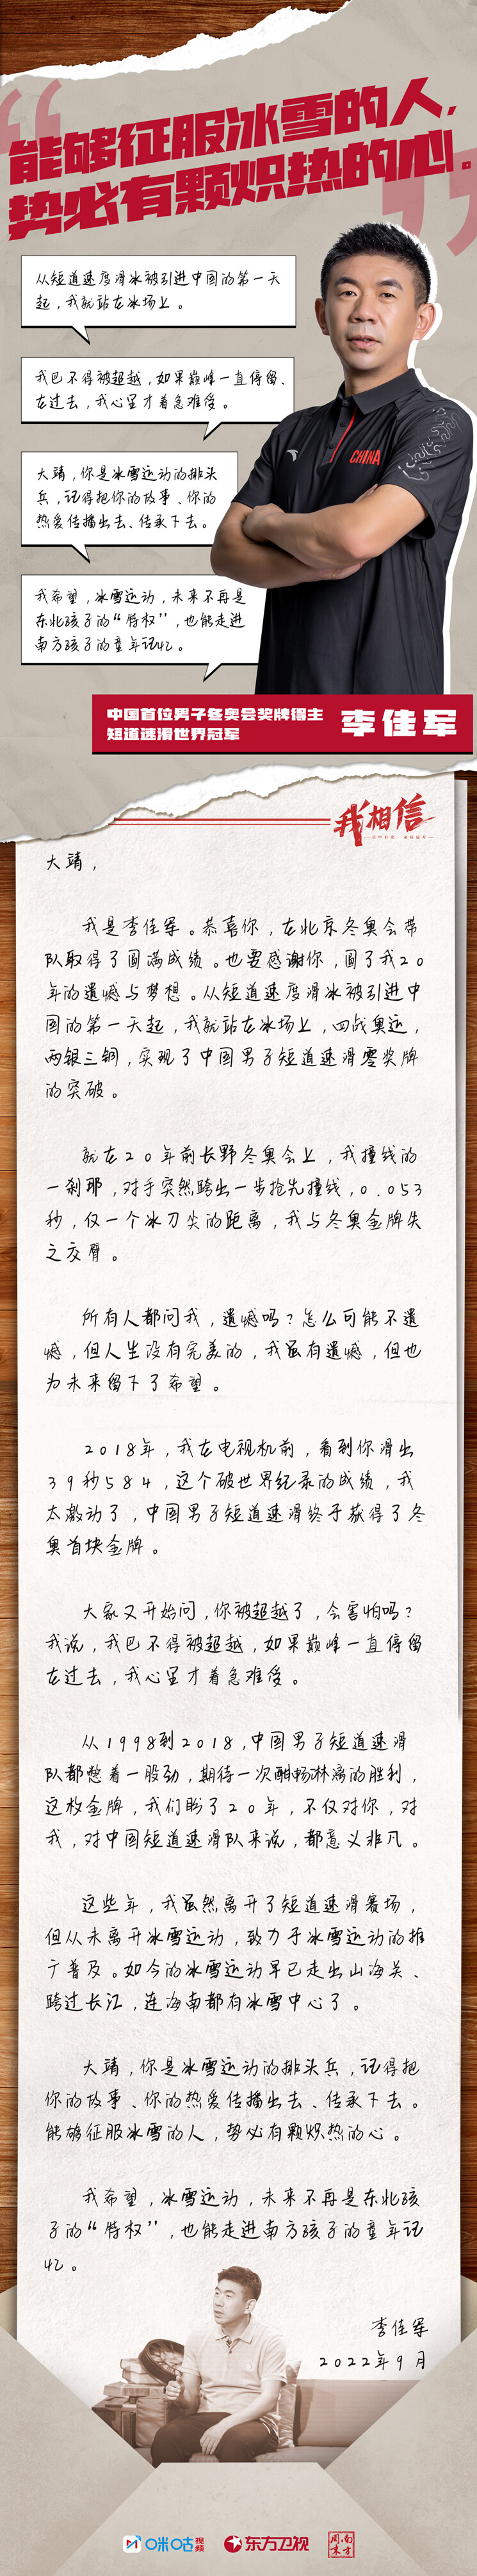 能够征服冰雪的人，
势必有颗炽热的心。
从短道速度滑冰被引进中国的第一天
起，我就站在冰场上。
我巴不得被超越，如果巅峰一直停留、
在过去，我心里才着急难受。
大靖，你是冰雪运动的排头
兵，记得把你的故事、你的
热爱传播出去、传承下去。
我希望，冰雪运动，未来不再是
东北孩子的“特权”，也能走进
南方孩子的童年记忆。
CHINA
中国首位男子冬奥会奖牌得主
短道速滑世界冠军
李佳军
我相信
大靖，
我是李佳军。恭喜你，在北京冬奥会带
队取得了圆满成绩。也要感谢你，圆了我20
年的遗憾与梦想。从短道速度滑冰被引进中
国的第一天起，我就站在冰场上，四战奥运，
两银三铜，实现了中国男子短道速滑零奖牌
的突破。
就在20年前长野冬奥会上，我撞线的
一刹那，对手突然跨出一步抢先撞线，0.053
秒，仅一个冰刀尖的距离，我与冬奥金牌失
之交臂。
所有人都问我，遗憾吗？怎么可能不遗
憾，但人生没有完美的，我虽有遗憾，但也
为未来留下了希望。
2018年，我在电视机前，看到你滑出
39秒584，这个破世界纪录的成绩，我
太激动了，中国男子短道速滑终于获得了冬
奥首块金牌。
大家又开始问，你被超越了，会害怕吗？
我说，我巴不得被超越，如果巅峰一直停留
在过去，我心里才着急难受。
从1998到2018，中国男子短道速滑
队都憋着一股劲，期待一次酣畅淋漓的胜利，
这枚金牌，我们盼了20年，不仅对你，对
我，对中国短道速滑队来说，都意义非凡。
这些年，我虽然离开了短道速滑赛场，
但从未离开冰雪运动，致力于冰雪运动的推
广普及。如今的冰雪运动早已走出山海关、
跨过长江，连海南都有冰雪中心了。
大靖，你是冰雪运动的排头兵，记得把
你的故事、你的热爱传播出去、传承下去。
能够征服冰雪的人，势必有颗炽热的心。
我希望，冰雪运动，未来不再是东北孩
子的“特权”，也能走进南方孩子的童年记
忆。
李佳军
2022年9月
咪咕视频
东方卫视
南方周末